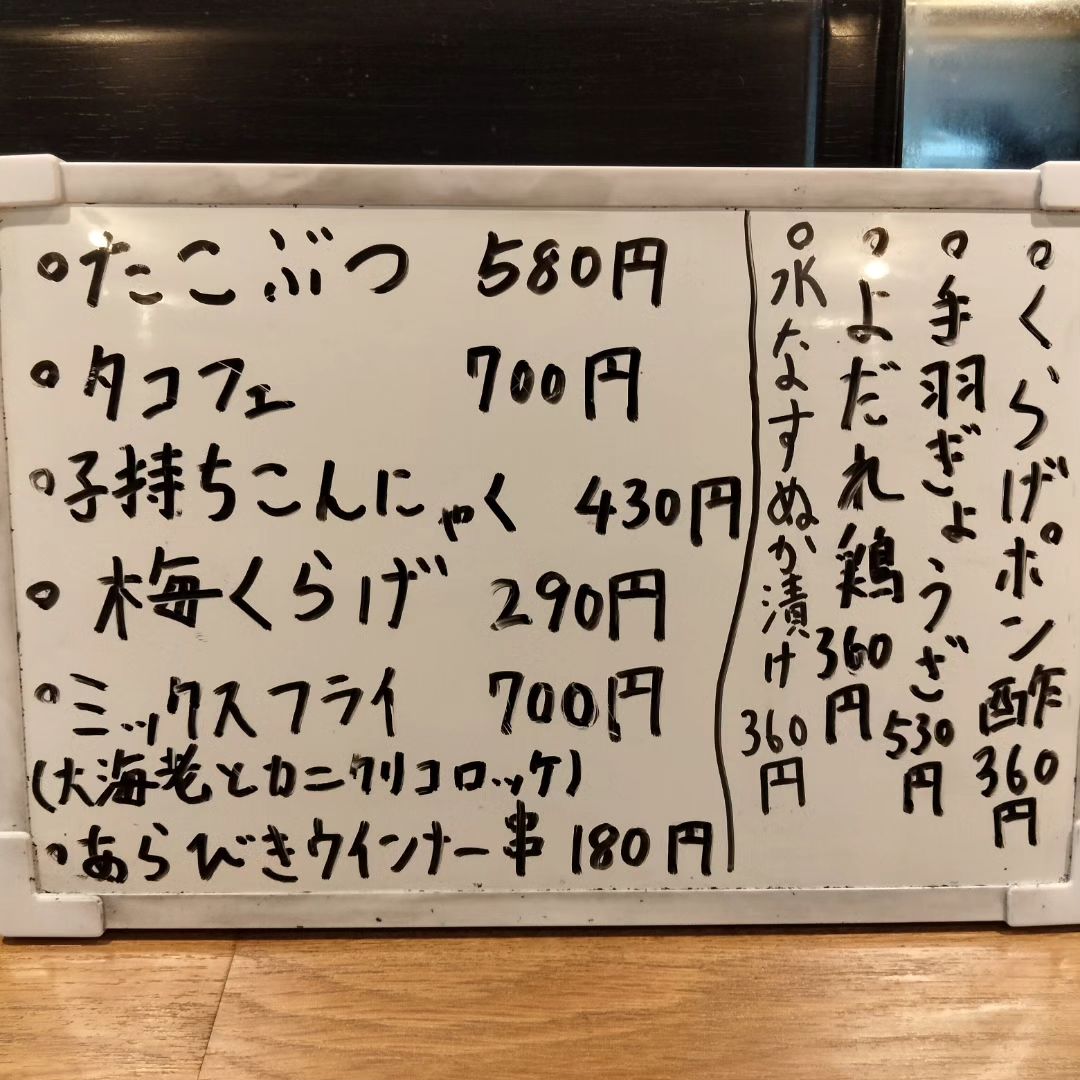 たこぶつ 580円
タコフェ 700円
子持ちこんにゃく 430円
梅くらげ 290円
ミックスフライ 700円
(大海老とカニクリコロッケ)
あらびきウインナー串 180円
くらげポン酢 360円
手羽ぎょうざ 530円
よだれ鶏 360円
水なすぬか漬け 360円